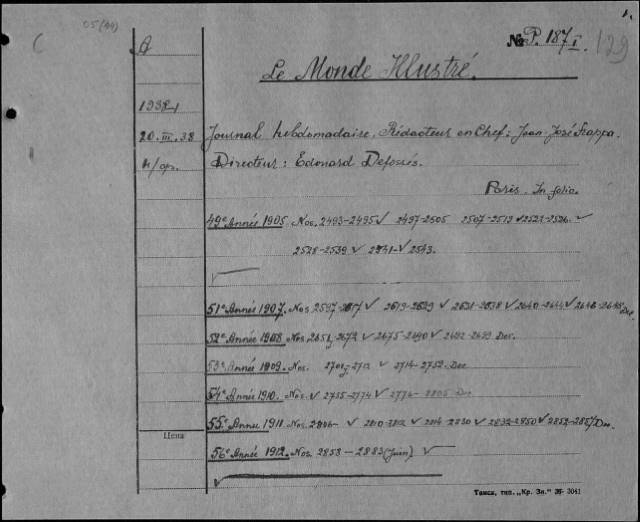 C 05(44) № P. 187 I. 129
A
Le Monde Illustré.
1938-1
20.III.38 Journal hebdomadaire. Rédacteur en Chef: Jean-José Frappa.
н/фр. Directeur: Edouard Desfossés.
Paris. In folio.
49e Année 1905. Nos. 2493-2495 ✓ 2497-2505 2507-2519 ✓ 2521-2526. ✓
2528-2539 ✓ 2541- ✓ 2543.
51e Année 1907. Nos 2597-2617 ✓ 2619-2629 ✓ 2631-2638 ✓ 2640-2644 ✓ 2646-2648 Dec.
52e Année 1908 Nos. 2651, 2672 ✓ 2675-2690 ✓ 2692-2699 Dec.
53e Année 1909. Nos. ✓ 2714-2752 Dec
54e Année 1910. Nos. ✓ 2755-2774 ✓ 2776-2805 De
55e Année 1911. Nos. 2806- ✓ 2810-2812 ✓ 2814-2830 ✓ 2832-2850 ✓ 2852-2857 Dec.
Цена
56e Année 1912. Nos. 2858-2883 (Juin) ✓
Томск, тип. „Кр. Зн." 36-3041